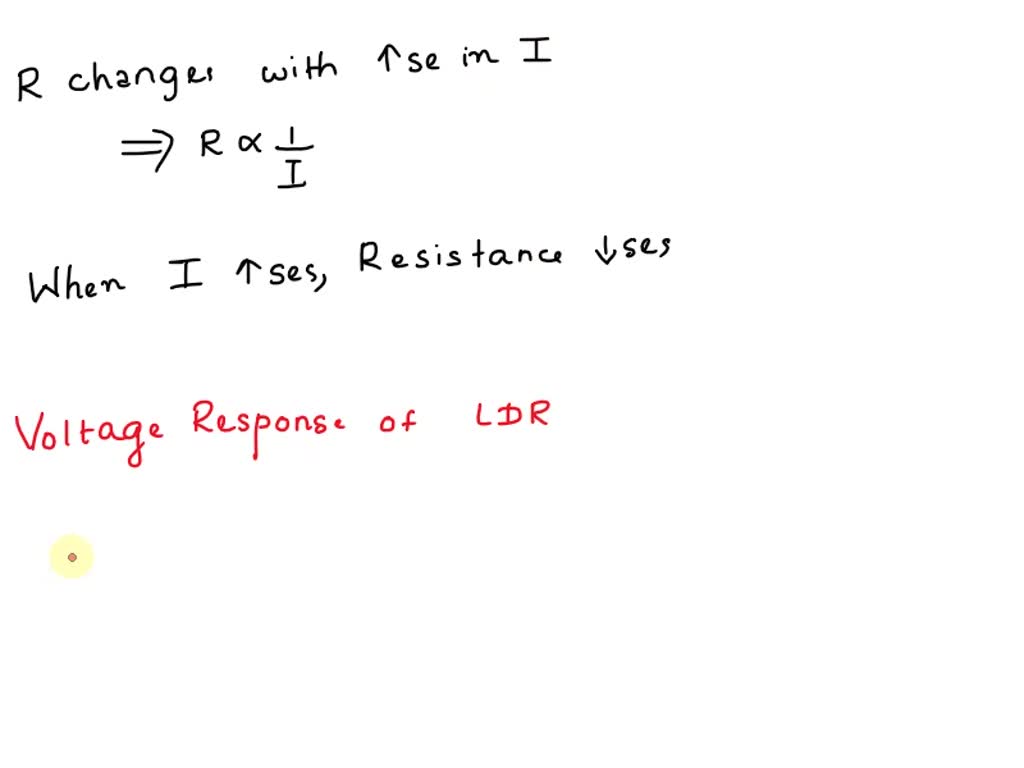 R changes with ↑se in I
⇒ R ∝ 1/I
When I ↑ses, Resistance ↓ses
Voltage Response of LDR